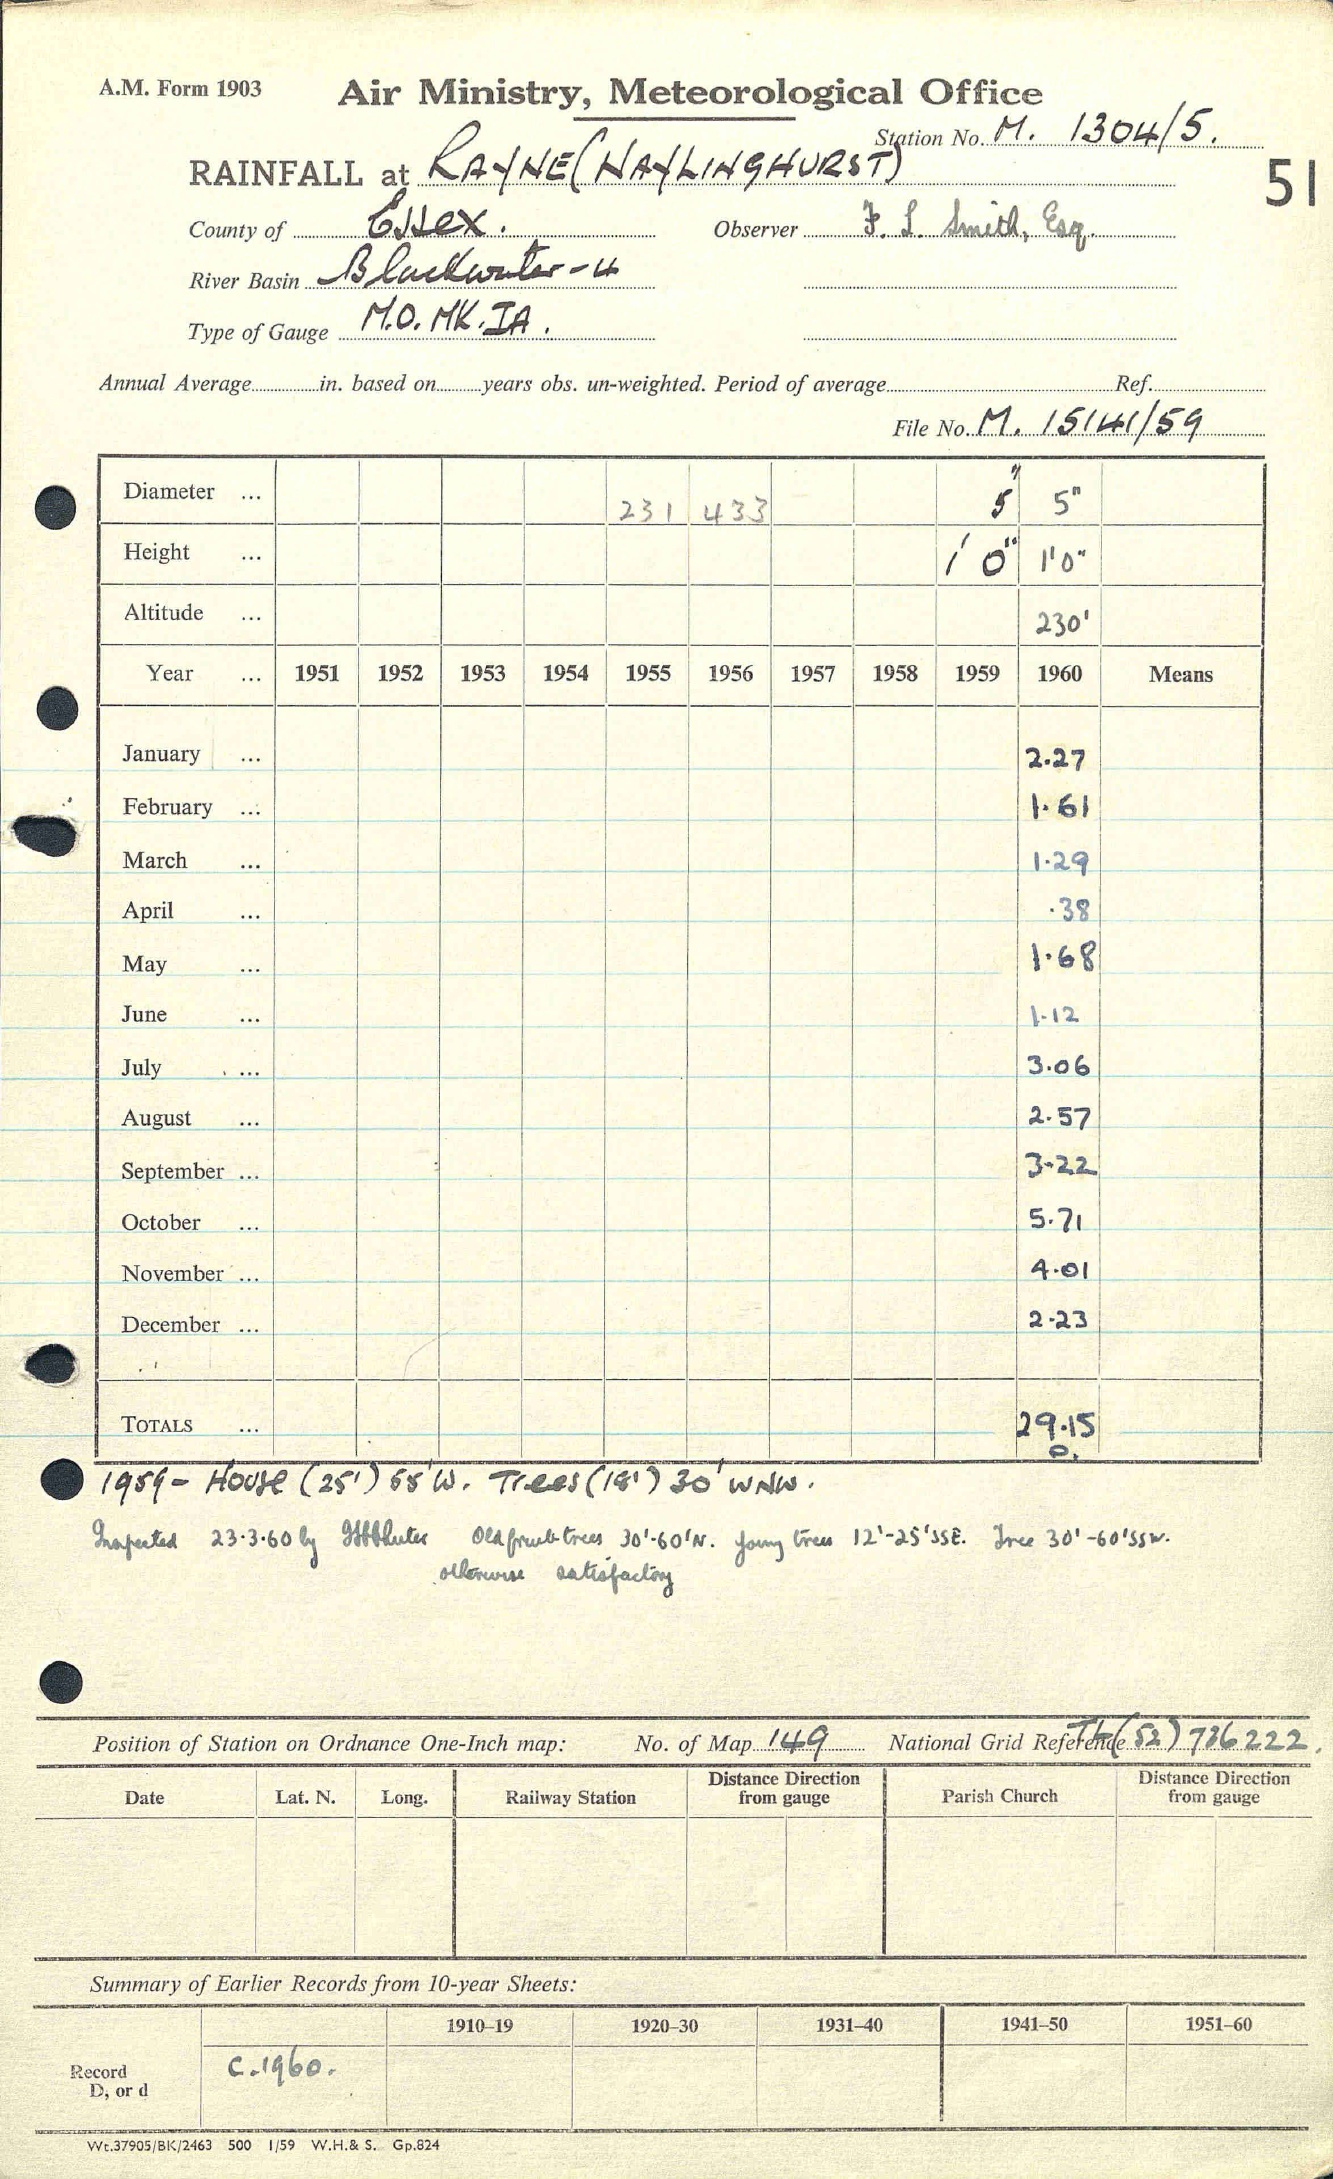 A.M. Form 1903
Air Ministry, Meteorological Office
Station No. M. 1304/5.
RAINFALL at RAYNE (NAYLINGHURST)
51
County of Essex.
Observer F. L. Smith, Esq.
River Basin Blackwater-4
Type of Gauge M.O. MK. IA.
Annual Average in. based on years obs. un-weighted. Period of average Ref.
File No. M. 15141/59
Diameter ... 231 433 5" 5"
Height ... 1' 0" 1'0"
Altitude ... 230'
Year ... 1951 1952 1953 1954 1955 1956 1957 1958 1959 1960 Means
January ... 2.27
February ... 1.61
March ... 1.29
April ... .38
May ... 1.68
June ... 1.12
July ... 3.06
August ... 2.57
September ... 3.22
October ... 5.71
November ... 4.01
December ... 2.23
TOTALS ... 29.15
0.
1959 - House (25') 55' W. Trees (18') 30' WNW.
Inspected 23.3.60 by Old fruit trees 30'-60'N. young trees 12'-25'SSE. Tree 30'-60'SSW.
otherwise satisfactory
Position of Station on Ordnance One-Inch map: No. of Map 149 National Grid Reference TL (52) 736222.
Date Lat. N. Long. Railway Station Distance Direction from gauge Parish Church Distance Direction from gauge
Summary of Earlier Records from 10-year Sheets:
1910–19 1920–30 1931–40 1941–50 1951–60
Record
D, or d
C.1960.
Wt.37905/BK/2463 500 1/59 W.H.& S. Gp.824